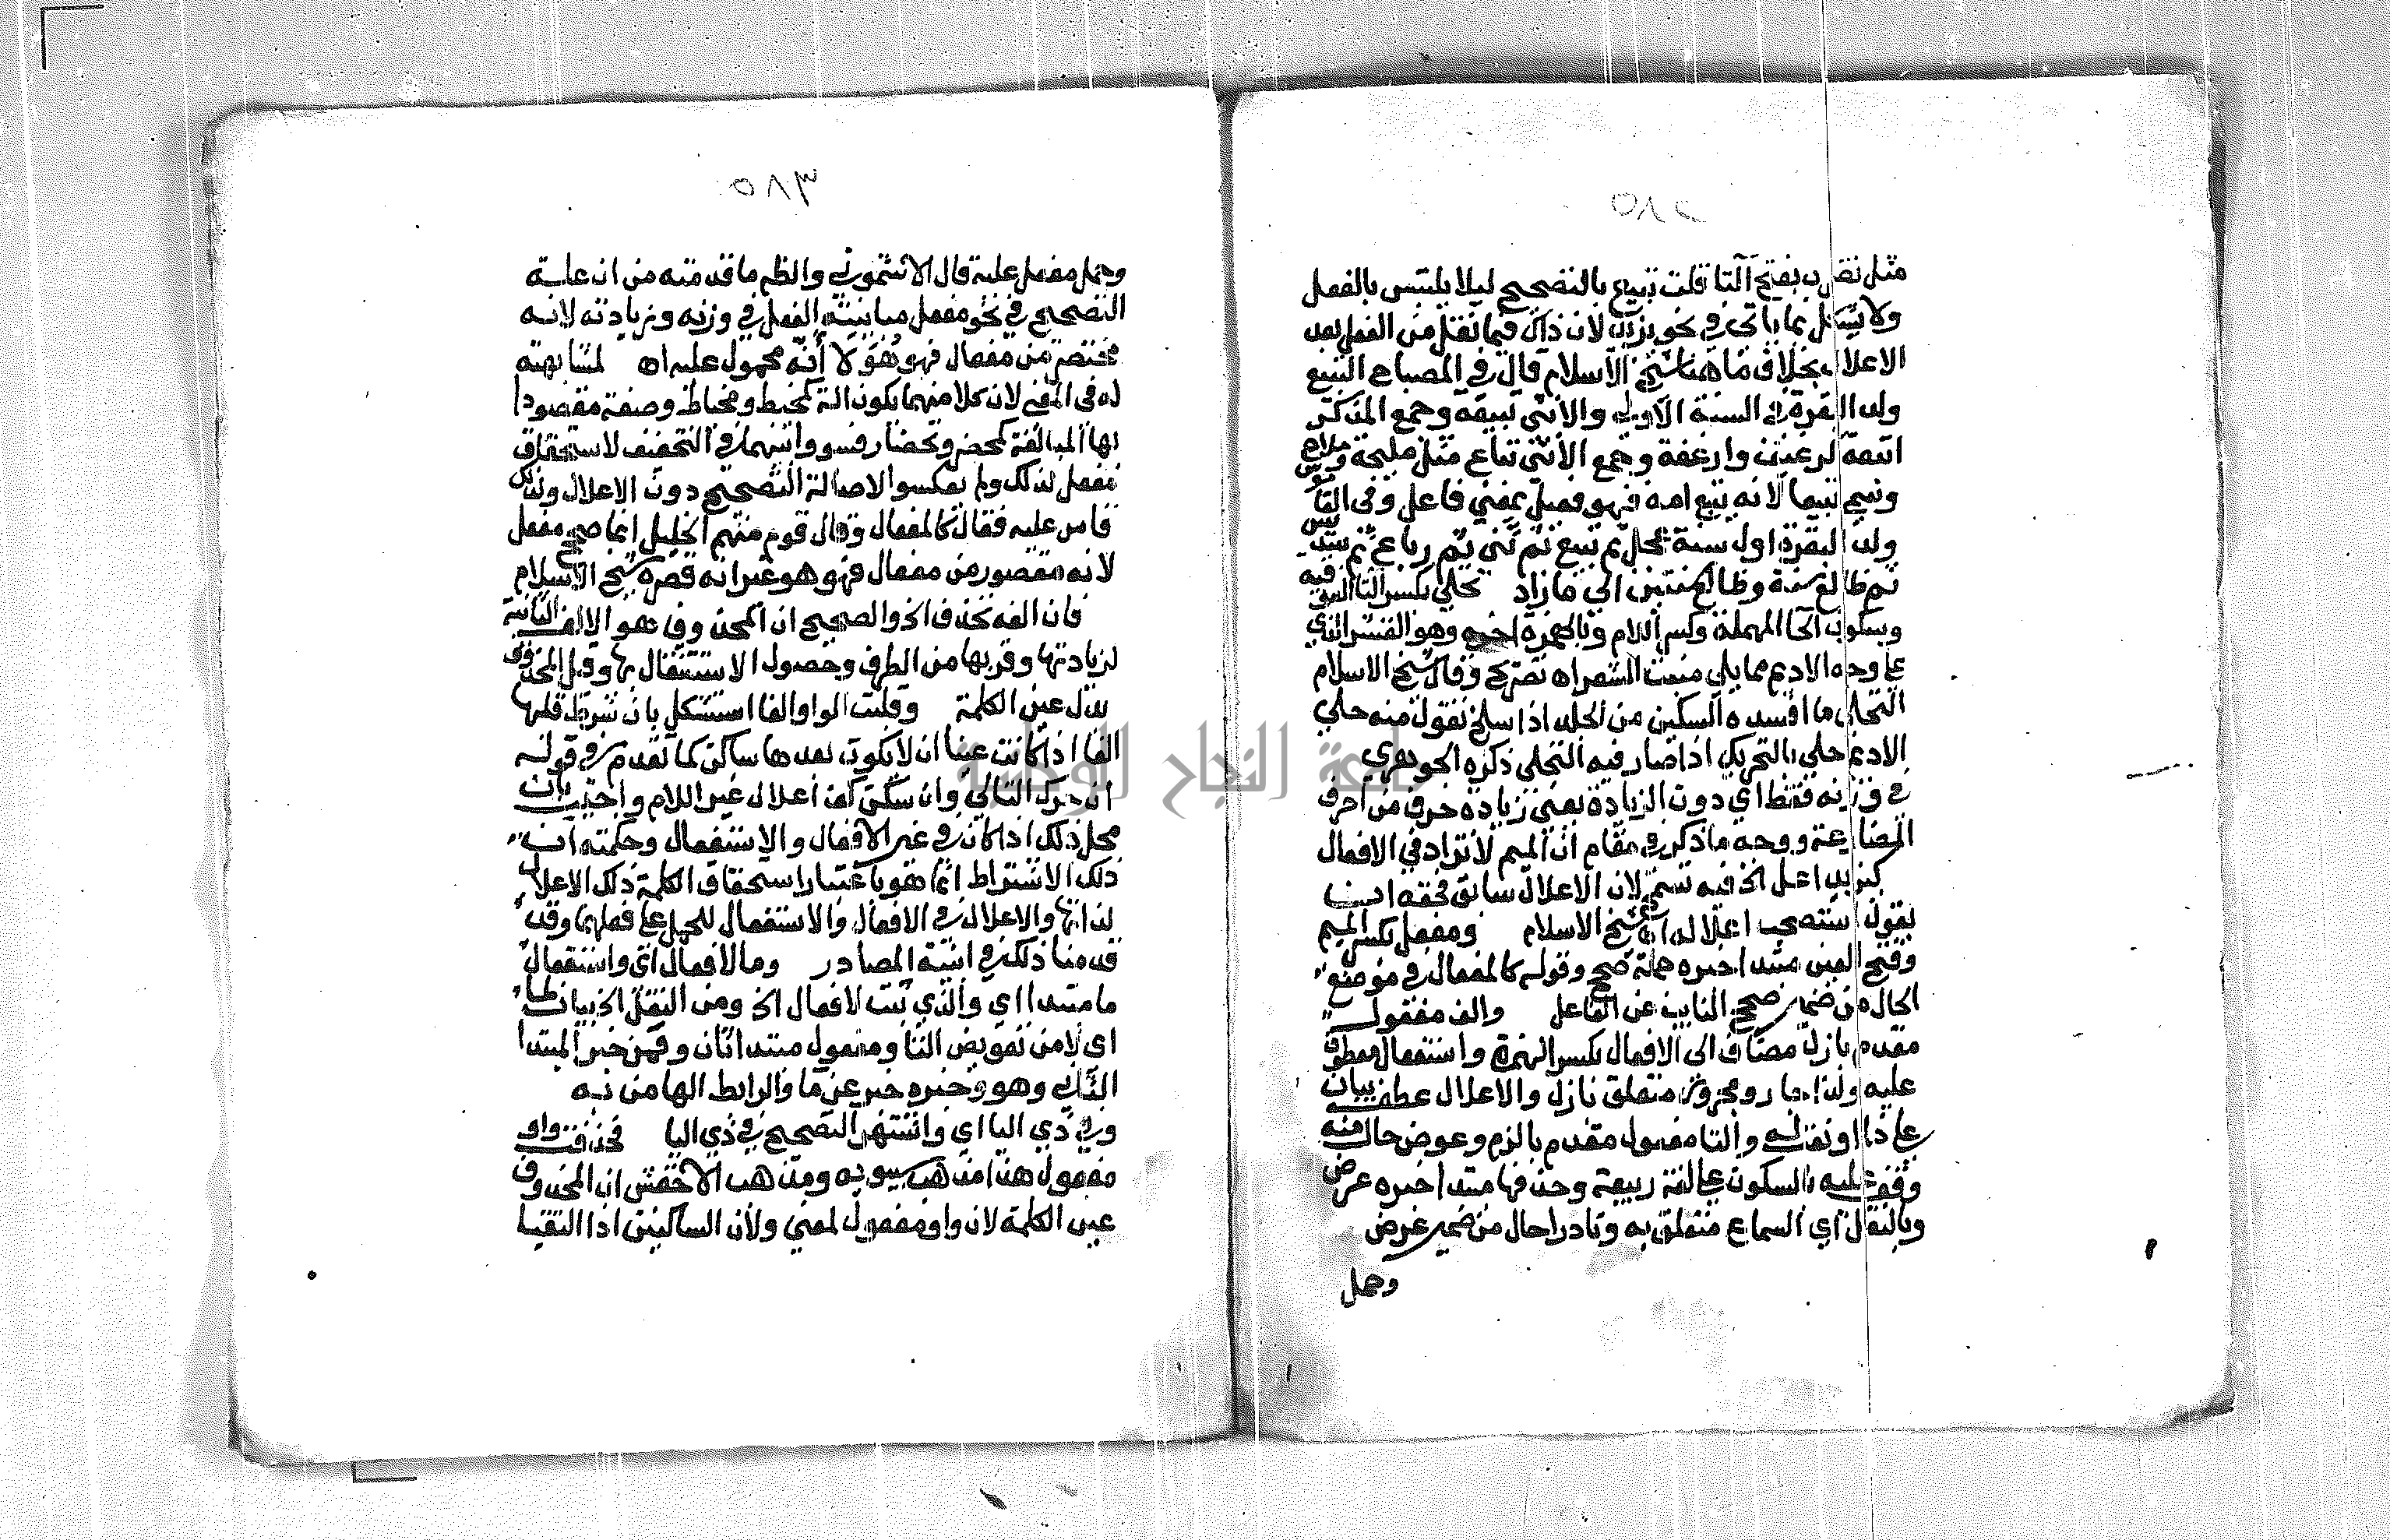 ٥٨٢
مثل تضرب بفتح التا قلت تبيع بالتصحيح ليلا يلتبس بالفعل
ولا يشكل بما ياتى في نحو يزيد لان ذاك فيما نقل من الفعل بعد
الاعلال بخلاف ما هنا شيخ الاسلام قال في المصباح التبيع
ولد البقرة في السنة الاولى والانثى تبيعة وجمع المذكر
اتبعة كرغيف وارغفة وجمع الانثى تباع مثل مليحة وملاح
وسمي تبيعا لانه يتبع امه فهو فعيل بمعني فاعل وفى القا
موس
ولد البقرة اول سنة عجل ثم تبيع ثم ثني ثم رباع ثم سديس
ثم ظالع سنة وظالع سنتين الى ما زاد تحلي بكسر التا الفوقية
وسكون الحا المهملة وكسر اللام وبالهمزة اخره وهو القشر الذي
علي وجه الاديم مما يلي منبت الشعر اه تصريح وقال شيخ الاسلام
التحلي ما افسده السكين من الجلد اذا سلخ تقول منه حلي
الاديم حلي بالتحريك اذا صار فيه التحلي ذكره الجوهري
في وزنه فقط اي دون الزيادة يعني زيادة حرف من احرف
المضارعة ووجه ما ذكر في مقام ان الميم لا تزاد في الافعال
كيزيد اعل الخ فيه تسمح لان الاعلال سابق فحقه ان
يقول استصحب اعلاله اه شيخ الاسلام ومفعل بكسر الميم
وفتح العين مبتدا خبره جملة صحح وقوله كالمفعال في موضع
الحال من ضمير صحح النايب عن الفاعل والف مفعول
مقدم بازل مضاف الى الافعال بكسر الهمزة واستفعال معطوف
عليه ولذا جار ومجرور متعلق بازل والاعلال عطف بيان
علي ذا او نعت له والتا مفعول مقدم بالزم وعوض حال منه
وقف عليه بالسكون علي لغة ربيعة وحذفها مبتدا خبره عرض
وبالنقل اي السماع متعلق به ونادرا حال من ضمير عرض
وحمل
٥٨٣
وحمل مفعل عليه قال الاشموني والظم ما قدمته من ان علة
التصحيح في نحو مفعل مباينته الفعل في وزنه وزيادته لانه
مختصر من مفعال فهو هُوَ لا أَنّه محمول عليه اه لمشابهته
له في المعني لان كلا منهما يكون الة كمخيط ومخياط وصفة مقصودا
بها المبالغة كمحضر ومحضار فسووا بينهما في التخفيف لاستحقاق
مفعل لذلك ولم يعكسوا لاصالة التصحيح دون الاعلال ولذلك
قاس عليه فقال كالمفعال وقال قوم منهم الخليل انما صح مفعل
لانه مقصور من مفعال فهو هو غير انه قصر اه شيخ الاسلام
فان الفه تحذف الخ والصحيح ان المحذوف هو الالف الثانية
لزيادتها وقربها من الطرف وحصول الاستثقال بها وقيل المحذوف
بدل عين الكلمة وقلبت الواو الفا استشكل بان شرط قلبها
الفا اذا كانت عينا ان لا يكون بعدها ساكن كما تقدم في قوله
ان حرك التالي وان سكن كف اعلال غير اللام واجيب بان
محل ذلك اذا كان في غير الافعال والاستفعال وحكمته ان
ذلك الاشتراط انما هو باعتبار استحقاق الكلمة ذلك الاعلال
لذاتها والاعلال في الافعال والاستفعال للحمل علي فعلهما وقد
قدمنا ذلك في ابنية المصادر وما لافعال اي واستفعال
ما مبتدا اي والذي ثبت لافعال الخ ومن النقل الخ بيان لما
اي لا من تعويض التا ومفعول مبتدا ثان وقمن خبر المبتدا
الثاني وهو وخبره خبر عن ما والرابط الها من به
وفي ذي اليا اي واشتهر التصحيح في ذي اليا فحذفت واو
مفعول هذا مذهب سيبويه ومذهب الاخفش ان المحذوف
عين الكلمة لان واو مفعول لمعني ولان الساكنين اذا التقيا
جامعة النجاح الوطنية